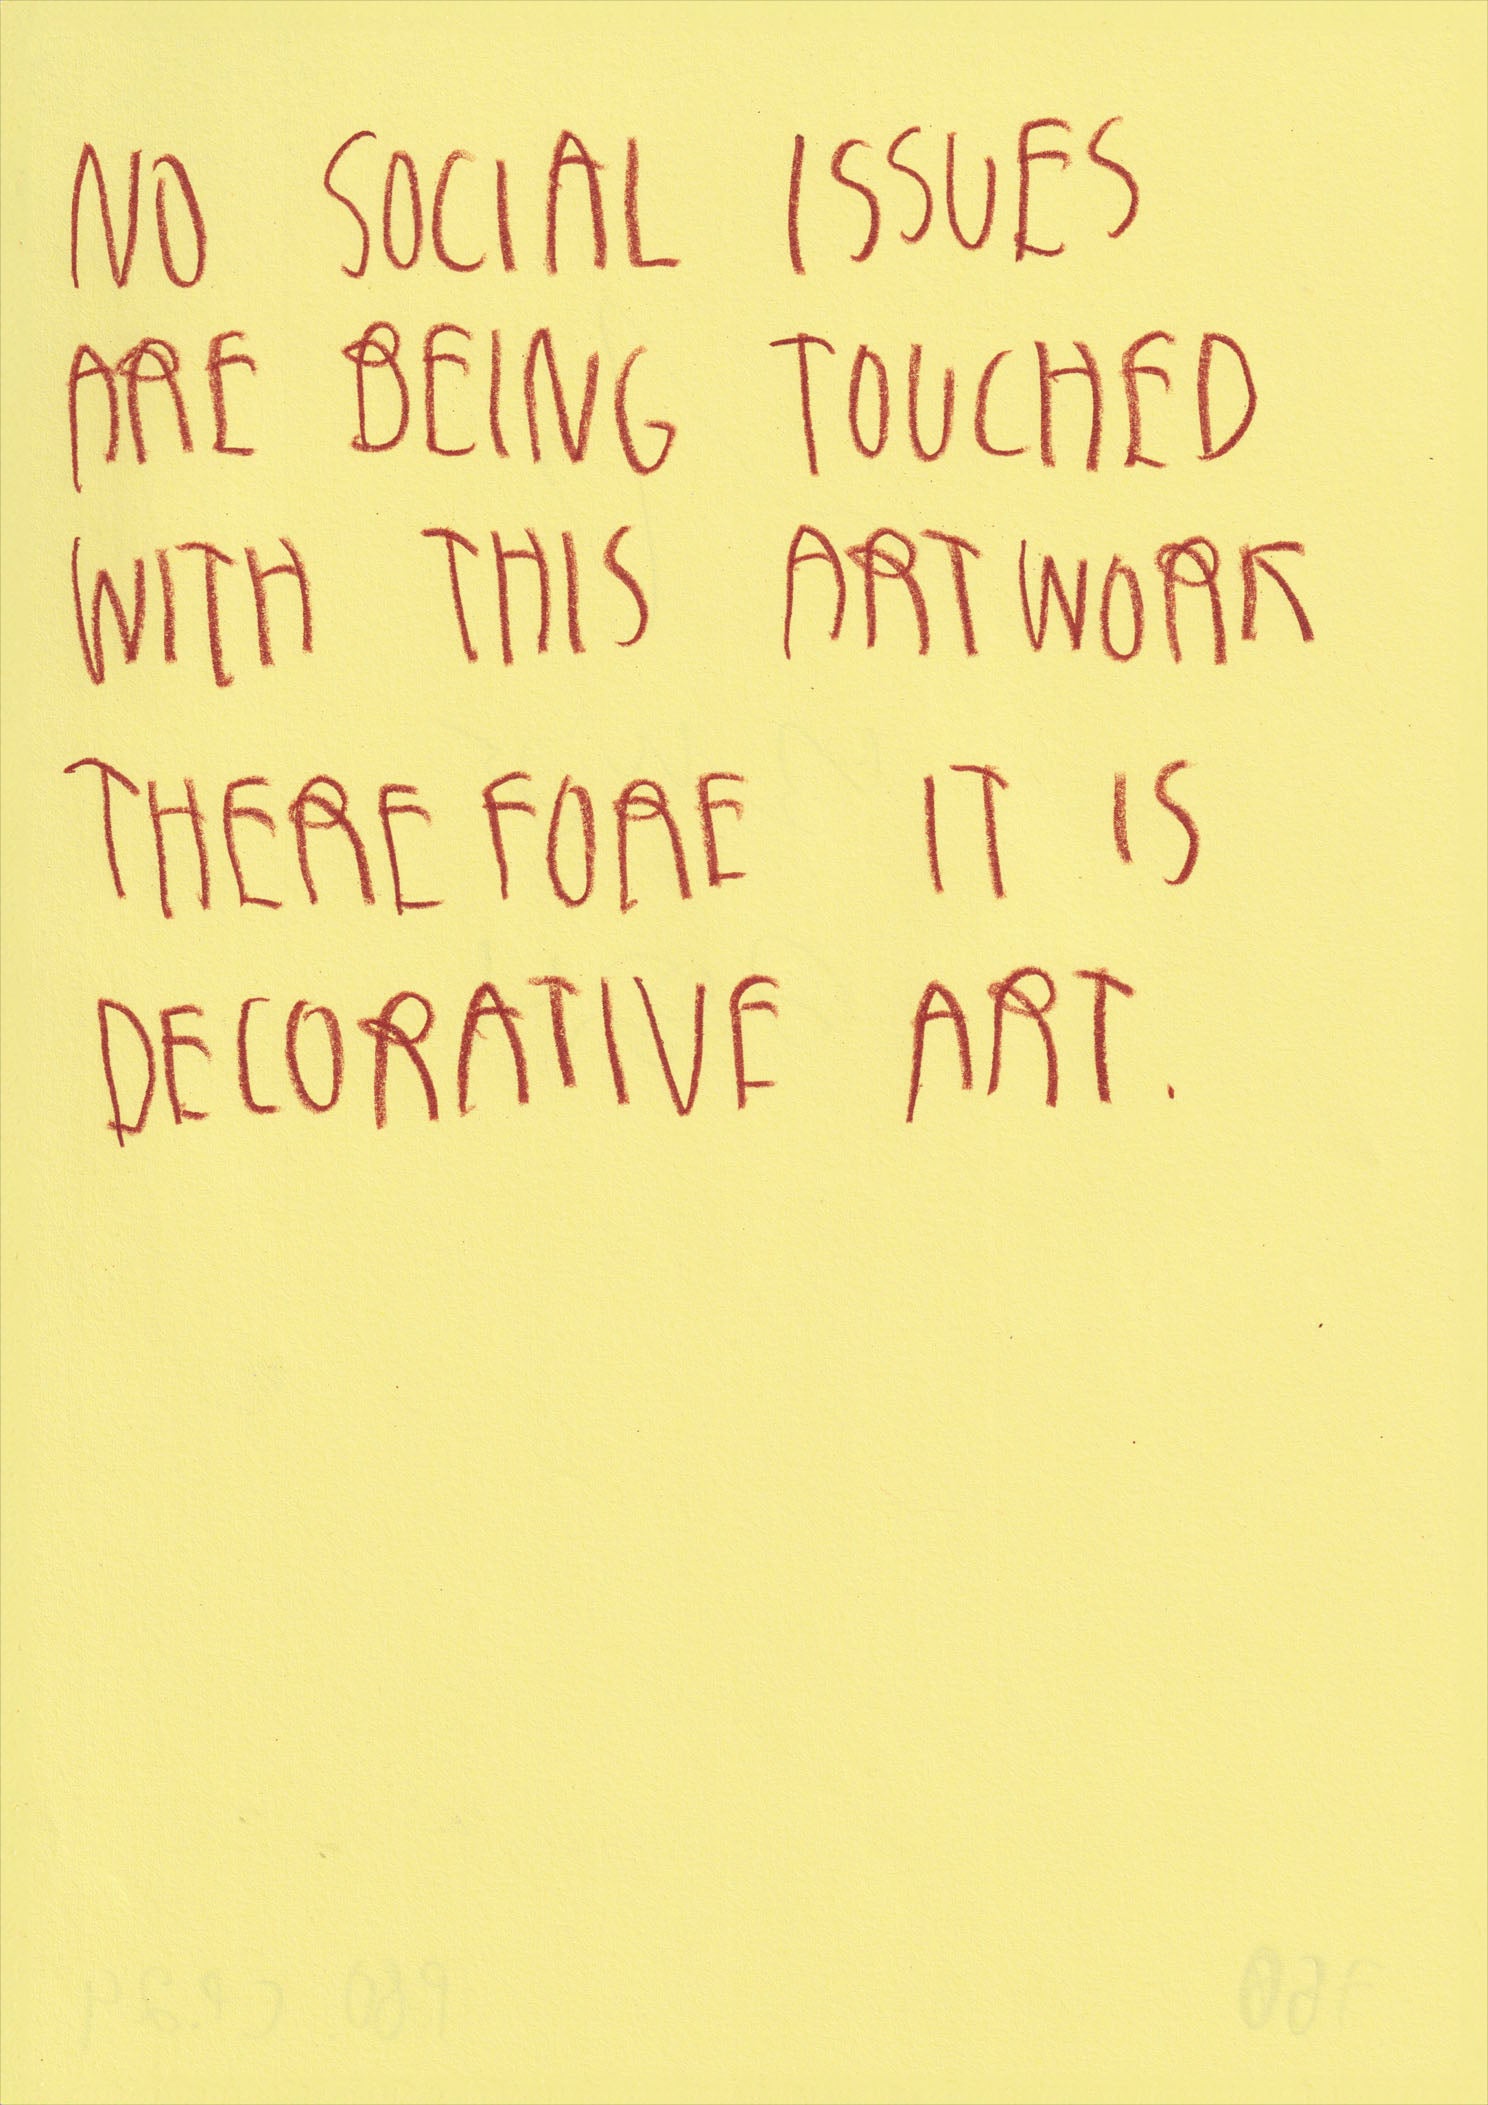 NO SOCIAL ISSUES
ARE BEING TOUCHED
WITH THIS ARTWORK
THEREFORE IT IS
DECORATIVE ART.